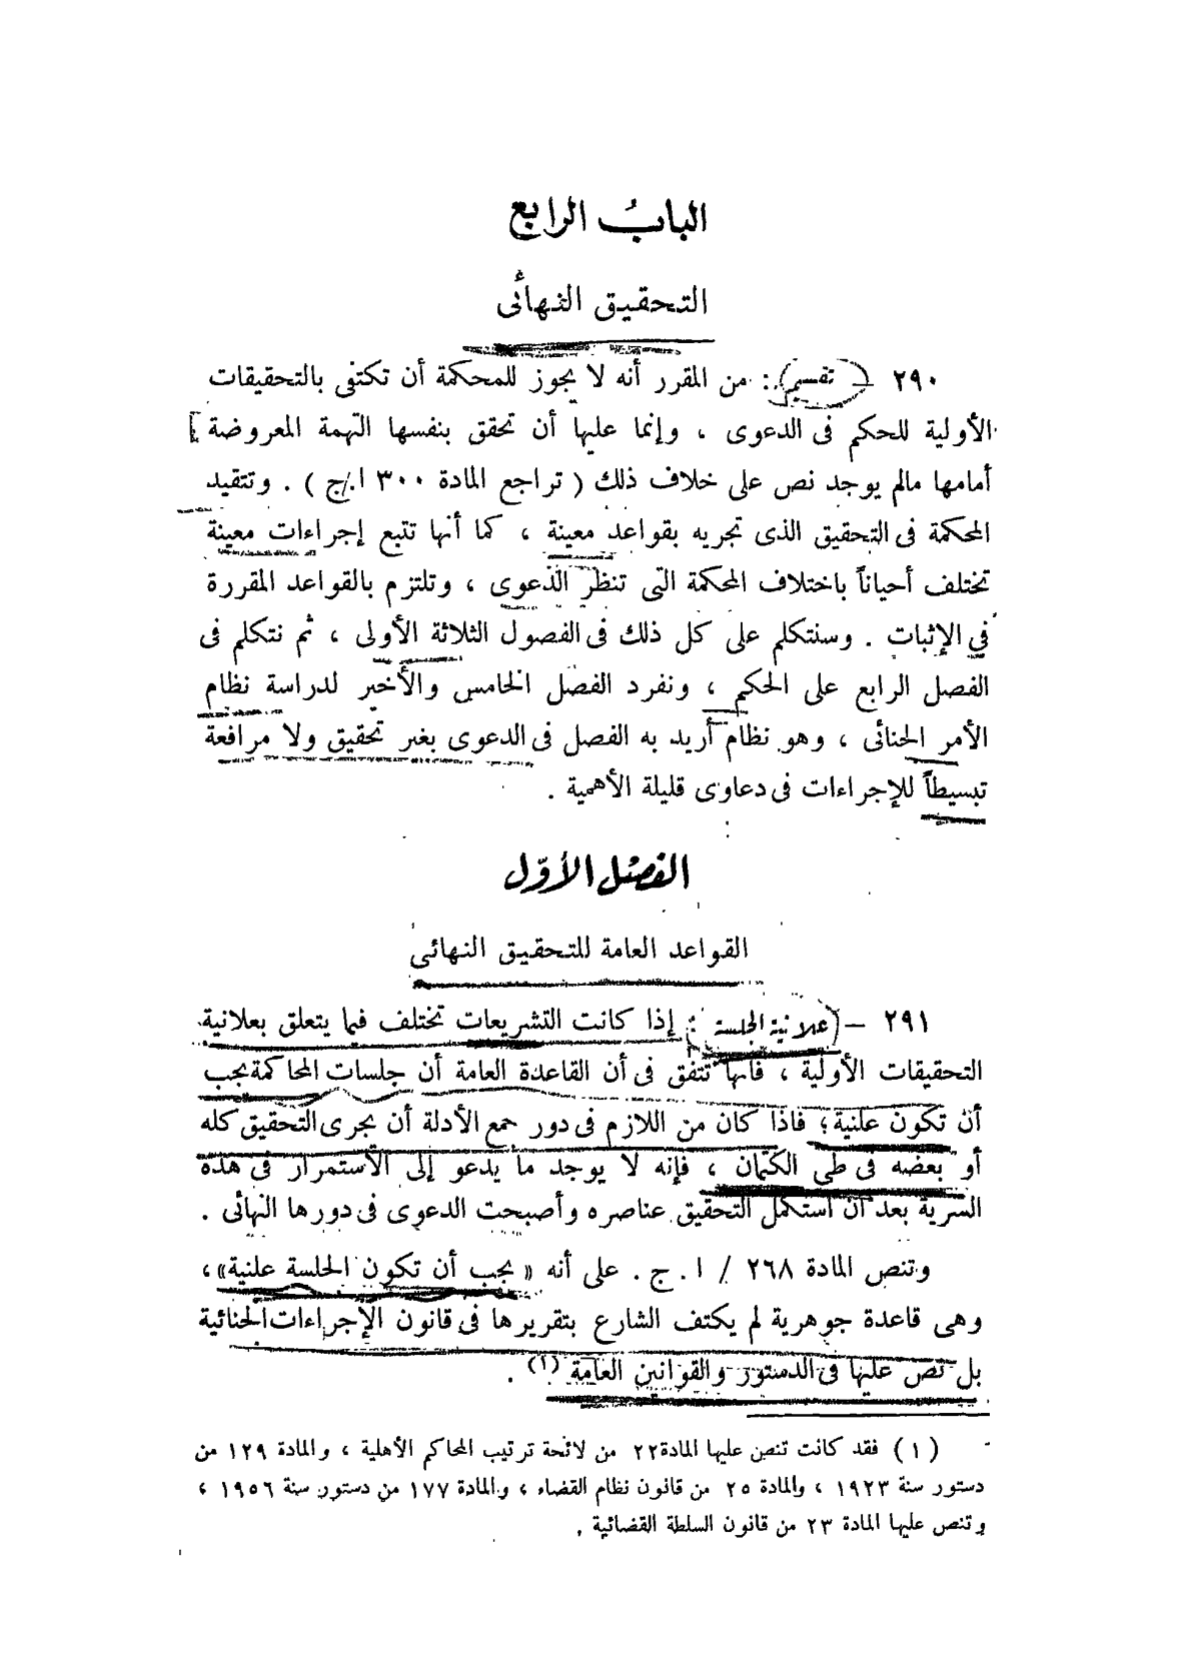 الباب الرابع
التحقيق النهائى
٢٩٠ – تقسيم : من المقرر أنه لا يجوز للمحكمة أن تكتفى بالتحقيقات
الأولية للحكم فى الدعوى ، وإنما عليها أن تحقق بنفسها التهمة المعروضة
أمامها مالم يوجد نص على خلاف ذلك ( تراجع المادة ٣٠٠ ا.ج ) . وتتقيد
المحكمة فى التحقيق الذى تجريه بقواعد معينة ، كما أنها تتبع إجراءات معينة
تختلف أحياناً باختلاف المحكمة التى تنظر الدعوى ، وتلتزم بالقواعد المقررة
في الإثبات . وسنتكلم على كل ذلك فى الفصول الثلاثة الأولى ، ثم نتكلم فى
الفصل الرابع على الحكم ، ونفرد الفصل الخامس والأخير لدراسة نظام
الأمر الجنائى ، وهو نظام أريد به الفصل فى الدعوى بغير تحقيق ولا مرافعة
تبسيطاً للإجراءات فى دعاوى قليلة الأهمية .
الفصل الأول
القواعد العامة للتحقيق النهائى
٢٩١ – علانية الجلسة : إذا كانت التشريعات تختلف فيما يتعلق بعلانية
التحقيقات الأولية ، فانها تتفق فى أن القاعدة العامة أن جلسات المحاكمة يجب
أن تكون علنية ؛ فاذا كان من اللازم فى دور جمع الأدلة أن يجرى التحقيق كله
أو بعضه فى طى الكتمان ، فإنه لا يوجد ما يدعو إلى الاستمرار فى هذه
السرية بعد أن استكمل التحقيق عناصره وأصبحت الدعوى فى دورها النهائى .
وتنص المادة ٢٦٨ / ا . ج . على أنه « يجب أن تكون الجلسة علنية» ،
وهى قاعدة جوهرية لم يكتف الشارع بتقريرها فى قانون الإجراءات الجنائية
بل نص عليها فى الدستور والقوانين العامة (١) .
(١) فقد كانت تنص عليها المادة ٢٢ من لائحة ترتيب المحاكم الأهلية ، والمادة ١٢٩ من
دستور سنة ١٩٢٣ ، والمادة ٢٥ من قانون نظام القضاء ، والمادة ١٧٧ من دستور سنة ١٩٥٦ ،
وتنص عليها المادة ٢٣ من قانون السلطة القضائية .